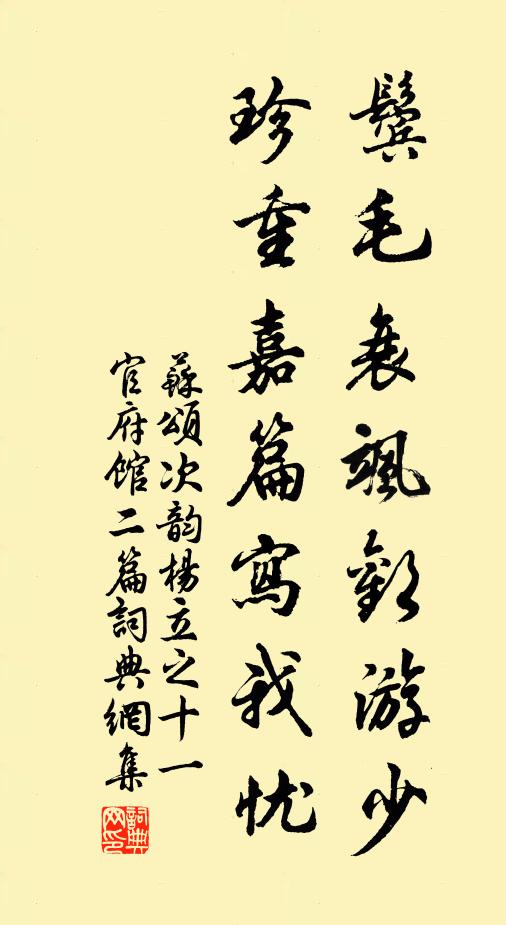 鬓毛衰飒欢游少
珍重嘉篇写我忧
苏颂次韵杨立之十一
官府馆二篇词典网集
词典网印